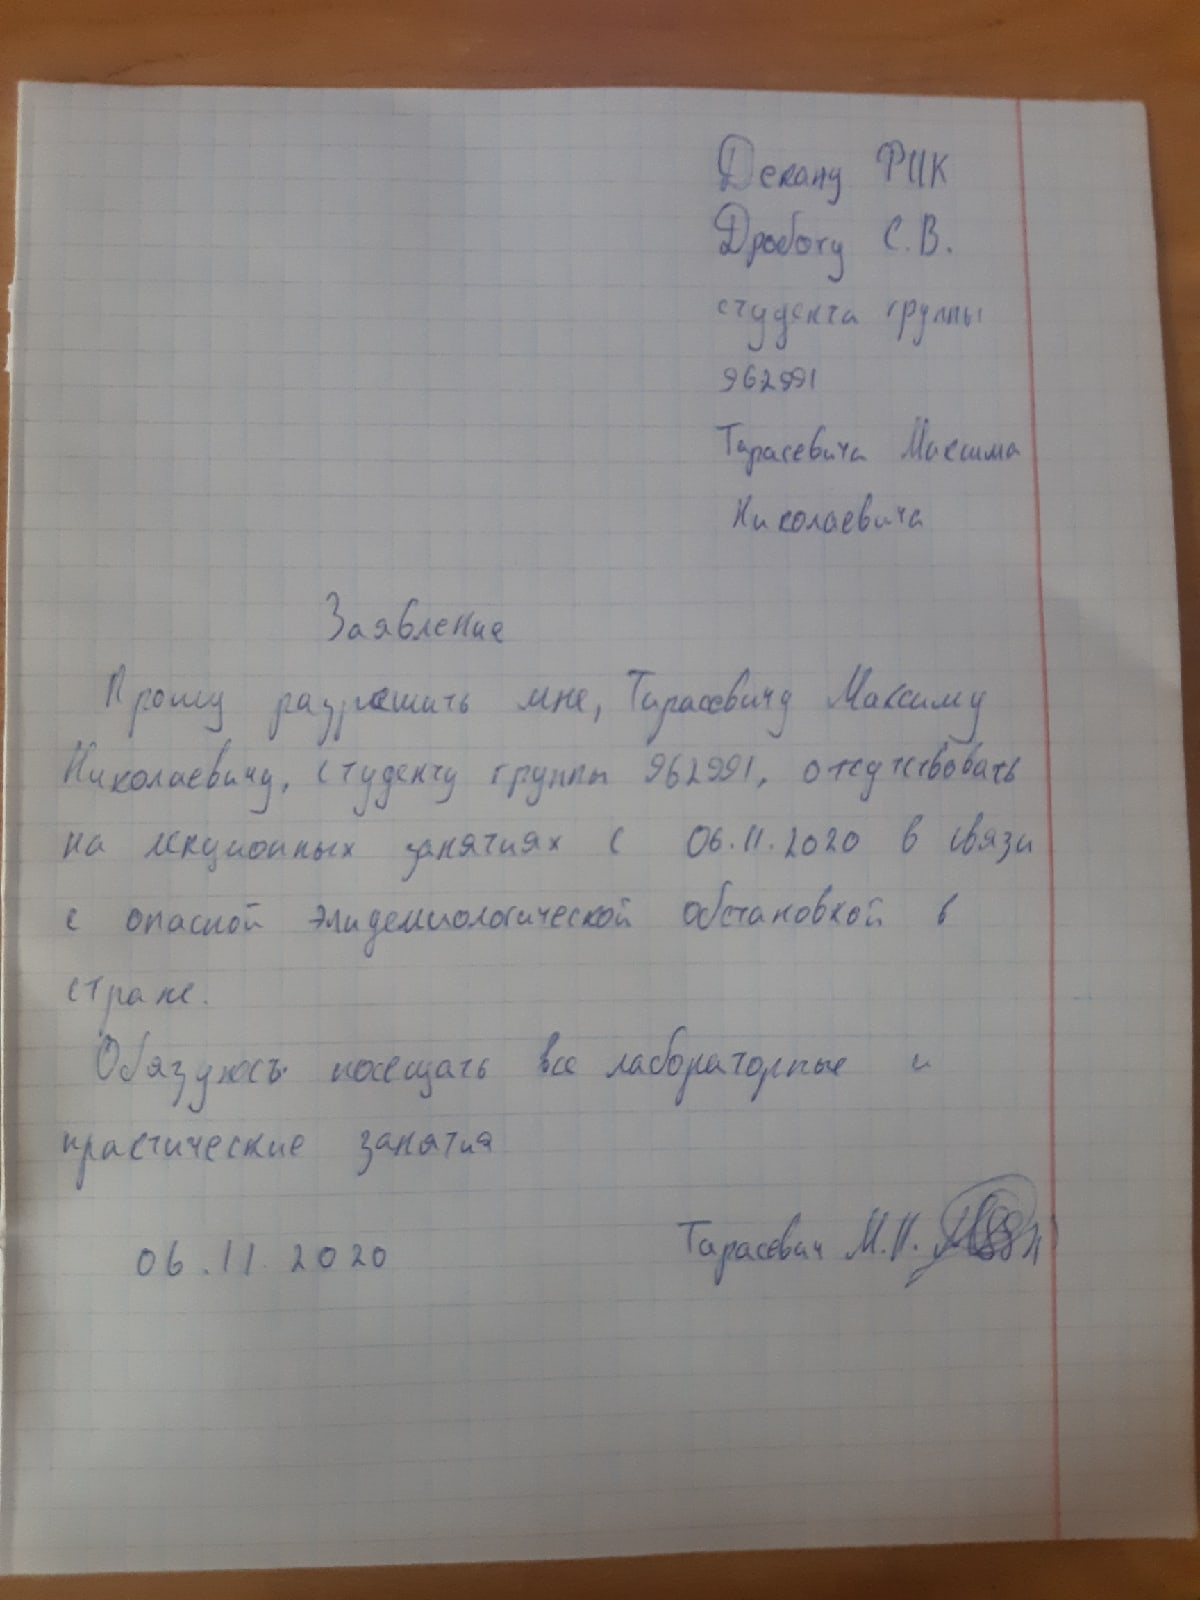 Декану ФКП
Дроботу С.В.
студента группы
962991
Тарасевича Максима
Николаевича
Заявление
Прошу разрешить мне, Тарасевичу Максиму
Николаевичу, студенту группы 962991, отсутствовать
на лекционных занятиях с 06.11.2020 в связи
с опасной эпидемиологической обстановкой в
стране.
Обязуюсь посещать все лабораторные и
практические занятия
06.11.2020
Тарасевич М.Н.